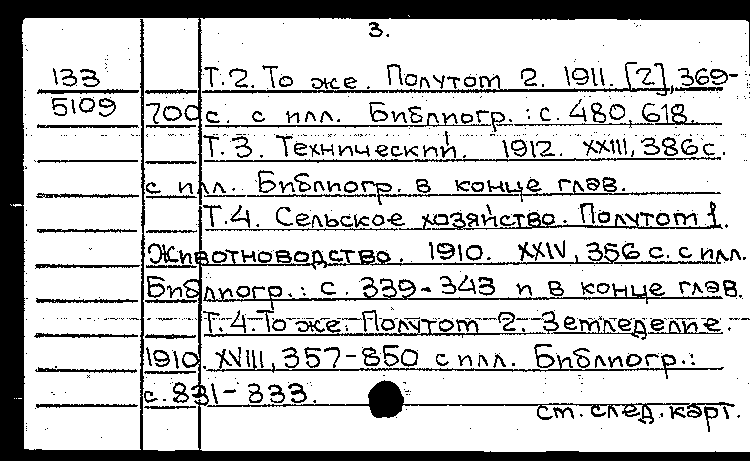 3.
133 Т.2. То же. Полутом 2. 1911. [2], 369-
5109 700с. с илл. Библиогр.: с. 480, 618.
Т.3. Технический. 1912. XXIII, 386с.
с илл. Библиогр. в конце глав.
Т.4. Сельское хозяйство. Полутом 1.
Животноводство. 1910. XXIV, 356 с. с илл.
Библиогр.: с. 339-343 и в конце глав.
Т.4. То же. Полутом 2. Земледелие.
1910. XVIII, 357-850 с илл. Библиогр.:
с. 831-833.
см. след. карт.